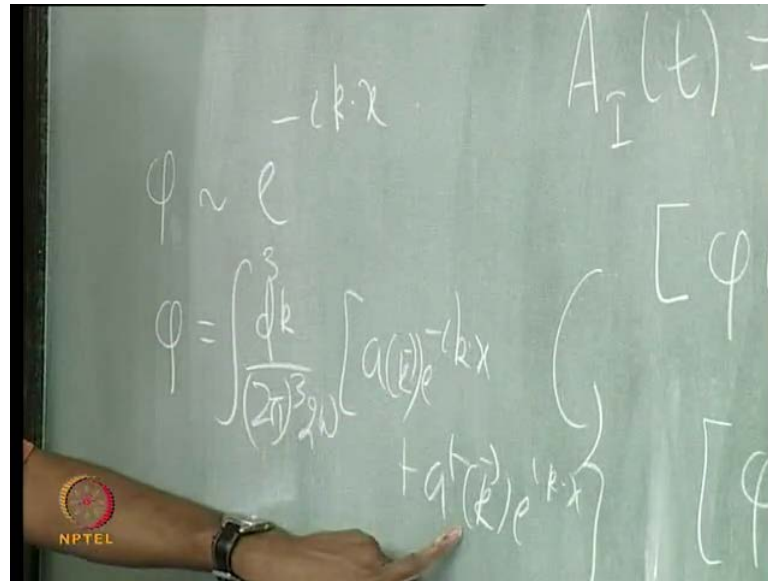 φ ~ e^{-ik·x}
φ = ∫ d³k / (2π)³2ω [ a(k̄)e^{-ik·x}
+ a†(k̄)e^{ik·x} ]
A_I(t) =
[φ
[φ
NPTEL